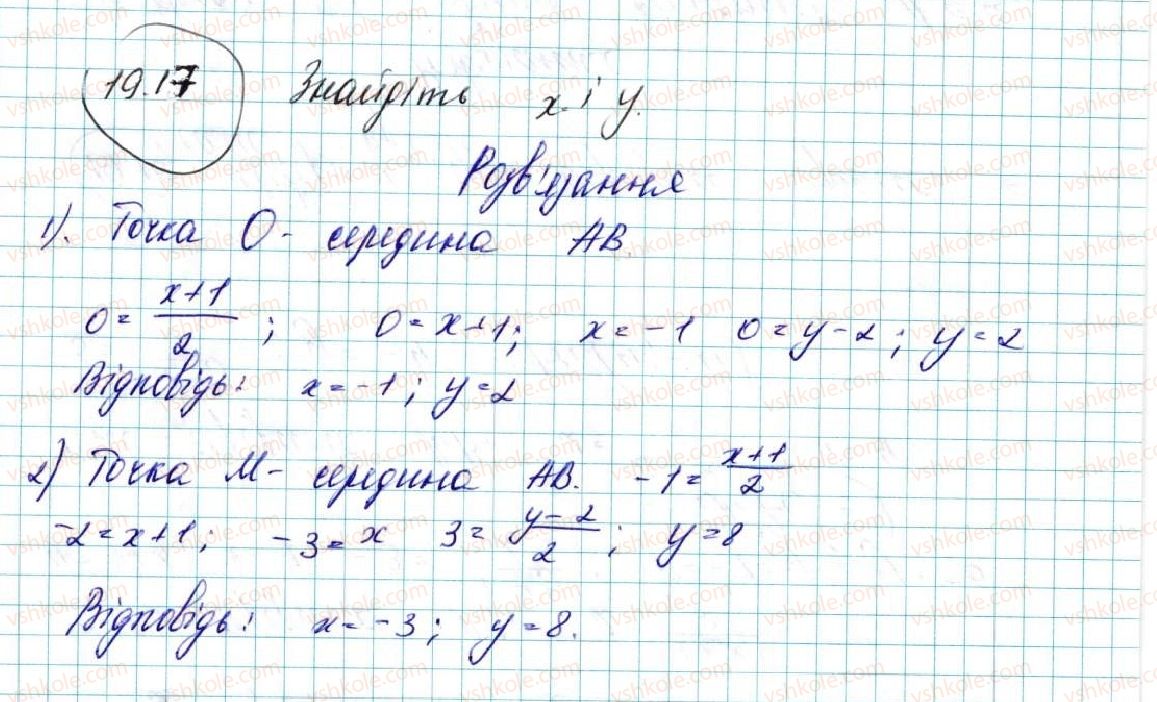 19.17 Знайдіть x і y.
Розв'язання
1). Точка О - середина АВ.
0 = (x+1)/2 ; 0 = x+1; x = -1 0 = y-2; y = 2
Відповідь: x = -1; y = 2
2) Точка М - середина АВ. -1 = (x+1)/2
-2 = x+1; -3 = x 3 = (y-2)/2 ; y = 8
Відповідь: x = -3; y = 8.